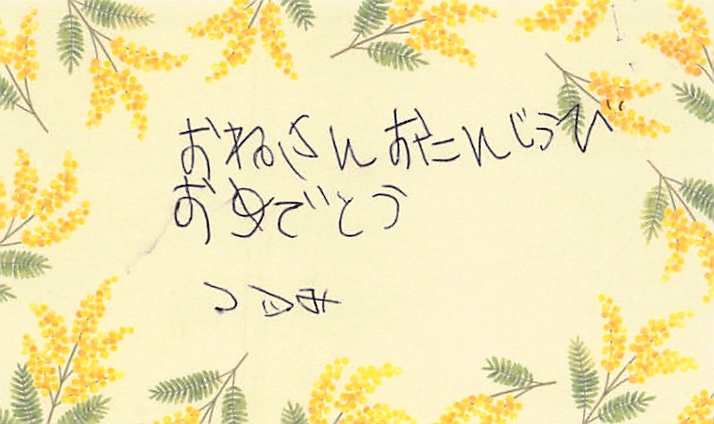 おねいさん おたんじうび
おめでとう